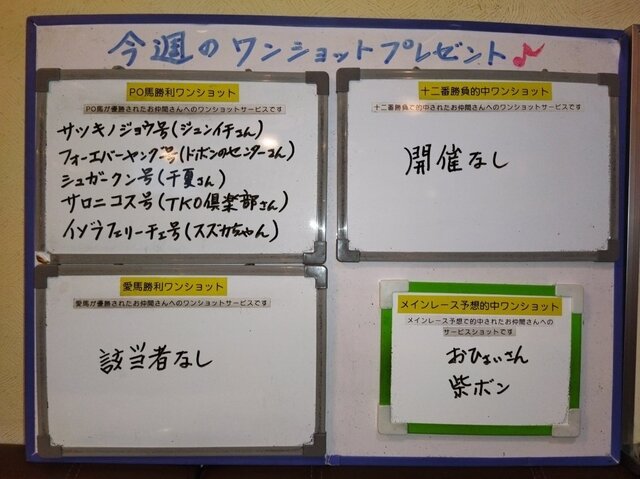 今週のワンショットプレゼント♪
PO馬勝利ワンショット
PO馬が優勝されたお仲間さんへのワンショットサービスです
サツキノジョウ号(ジュンイチさん)
フォーエバーヤング号(ドボンのセンターさん)
シュガークン号(千夏さん)
サロニコス号(TKO倶楽部さん)
イゾラフェリーチェ号(スズカちゃん)
十二番勝負的中ワンショット
十二番勝負で的中されたお仲間さんへのワンショットサービスです
開催なし
愛馬勝利ワンショット
愛馬が優勝されたお仲間さんへのワンショットサービスです
該当者なし
メインレース予想的中ワンショット
メインレース予想で的中されたお仲間さんへの
サービスショットです
おひょいさん
柴ボン